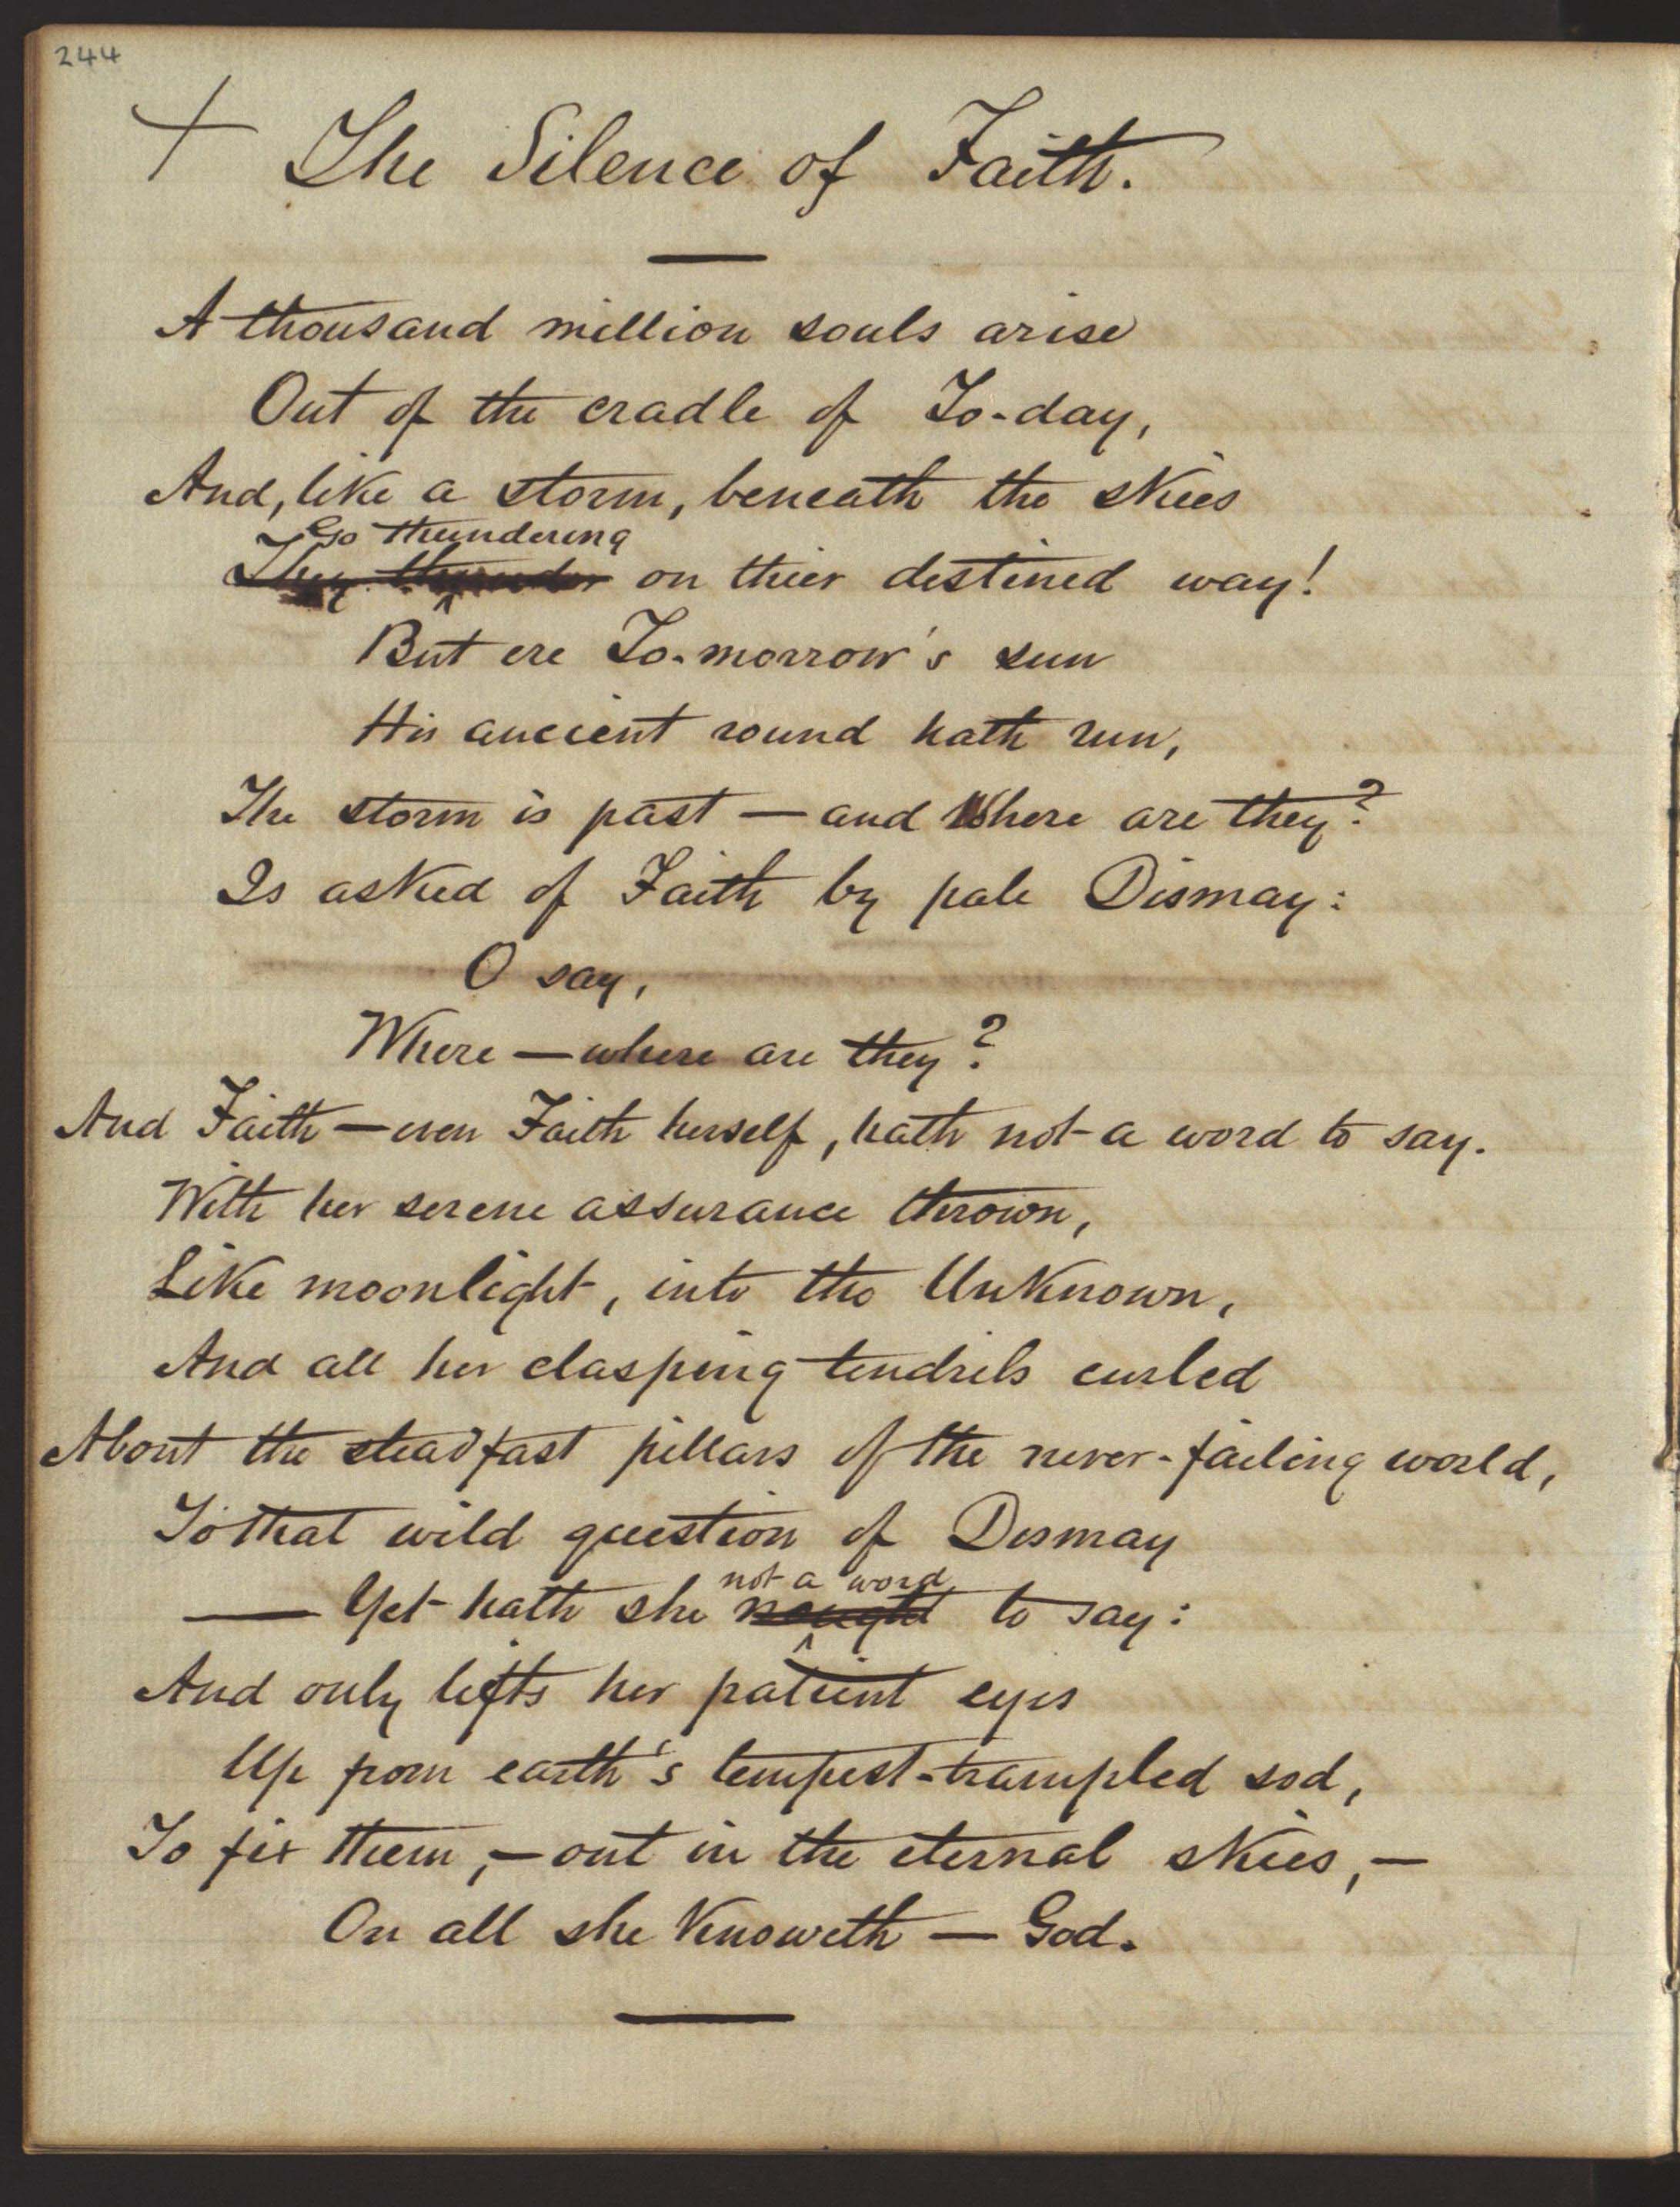 244
+ The Silence of Faith.
A thousand million souls arise
Out of the cradle of To-day,
And, like a storm, beneath the skies
Go thundering
They thunder on their destined way!
But ere To-morrow's sun
His ancient round hath run,
The storm is past — and Where are they?
Is asked of Faith by pale Dismay:
O say,
Where — where are they?
And Faith — even Faith herself, hath not a word to say.
With her serene assurance thrown,
Like moonlight, into the Unknown,
And all her clasping tendrils curled
About the steadfast pillars of the never-failing world,
To that wild question of Dismay
not a word
— Yet hath she nought to say:
And only lifts her patient eyes
Up from earth's tempest-trampled sod,
To fix them, — out in the eternal skies, —
On all she Knoweth — God.